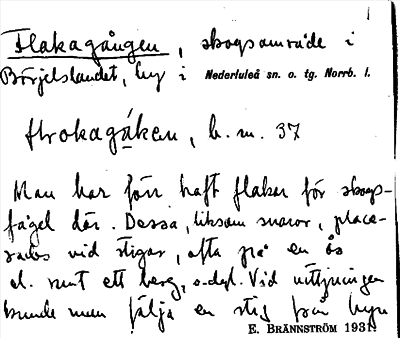 Flakagången, skogsområde i
Börjelslandet, by i Nederluleå sn. o. tg. Norrb. l.
flrokagáken, b. m. 37
Man har förr haft flakar för skogs-
fågel där. Dessa, liksom snaror, place-
rades vid stigar, ofta på en ås
el. runt ett berg, o.dyl. Vid vittjningen
kunde man följa en stig från byn
E. BRÄNNSTRÖM 1931.